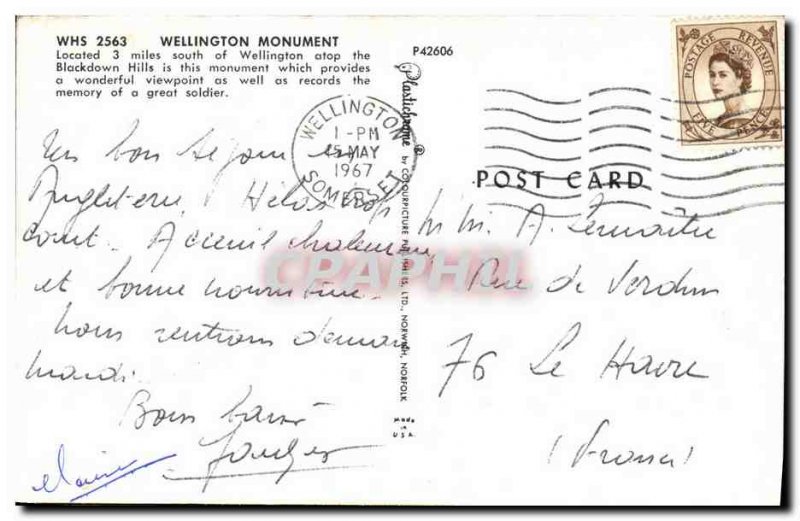 WHS 2563 WELLINGTON MONUMENT
Located 3 miles south of Wellington atop the
Blackdown Hills is this monument which provides
a wonderful viewpoint as well as records the
memory of a great soldier.
P42606
POSTAGE REVENUE
FIVE PENCE
WELLINGTON
1-PM
15 MAY
1967
SOMERSET
Plastichrome® by COLOURPICTURE PUBLISHERS, LTD., NORWICH, NORFOLK
Made in U.S.A.
POST CARD
Un bon séjour en
Angleterre. Hélas trop
court. Accueil chaleureux
et bonne nourriture.
Nous rentrons demain
mardi.
Bons baisers
M. Mme A. Lemaitre
Rue de Verdun
76 Le Havre
(France)
CPAPHIL